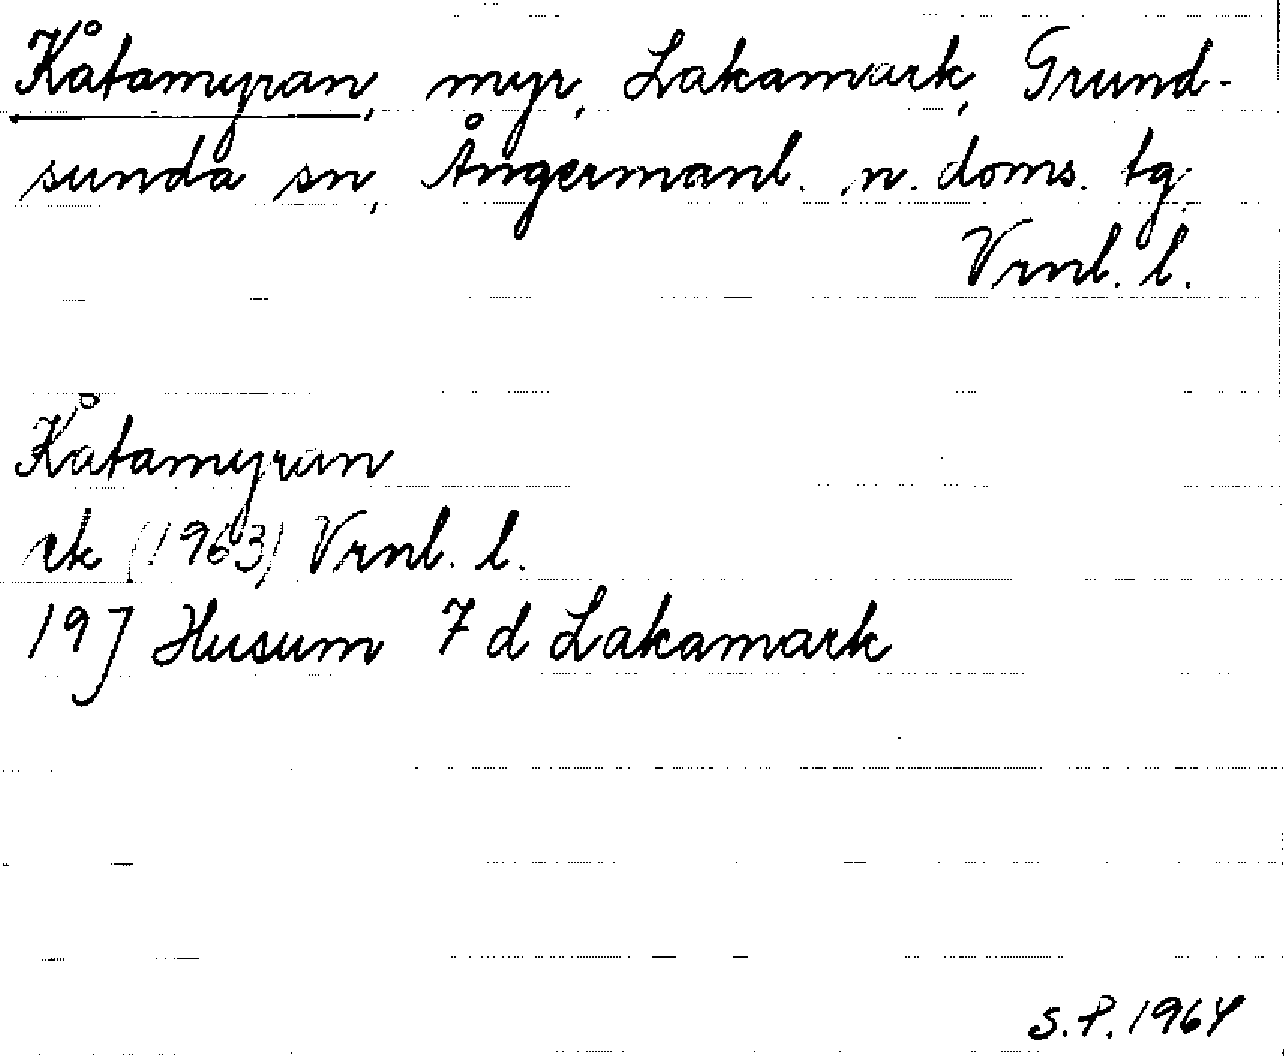 Kåtamyran, myr, Lakamark, Grund-
sunda sn, Ångermanl. n. doms. tg
Vrnl. l.
Kåtamyran
ek (1963) Vrnl. l.
19J Husum 7 d Lakamark
S.P. 1964